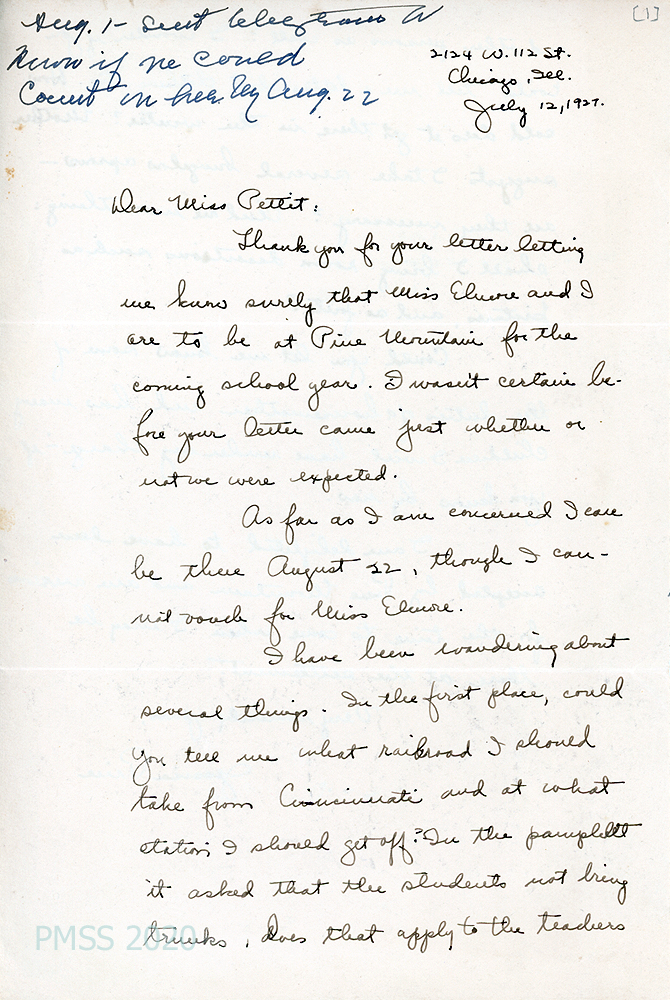 [1]
Aug. 1 - Sent telegram to
know if we could
count on her by Aug. 22
2124 W. 112 St.
Chicago, Ill.
July 12, 1927.
Dear Miss Pettit:
Thank you for your letter letting
me know surely that Miss Elmore and I
are to be at Pine Mountain for the
coming school year. I wasn't certain be-
fore your letter came just whether or
not we were expected.
As far as I am concerned I can
be there August 22, though I can-
not vouch for Miss Elmore.
I have been wondering about
several things. In the first place, could
you tell me what railroad I should
take from Cincinnati and at what
station I should get off? In the pamphlet
it asked that the students not bring
trunks, does that apply to the teachers
PMSS 2020